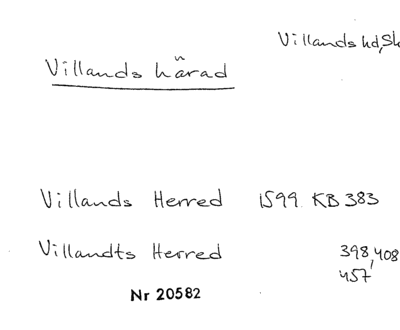 Villands hd, Sk
Villands härad
Villands Herred 1599. KB 383
Villandts Herred 398, 408
457
Nr 20582